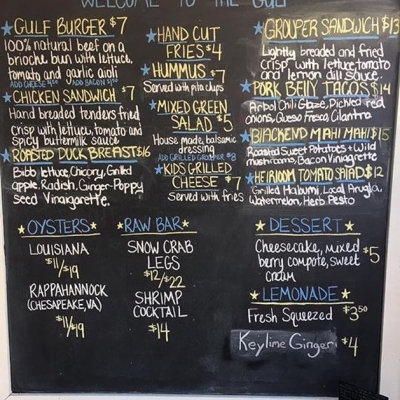 WELCOME TO THE GULF
GULF BURGER $7
100% natural beef on a
brioche bun with lettuce,
tomato and garlic aioli
ADD CHEESE $1 ADD BACON $1.50
CHICKEN SANDWICH $7
Hand breaded tenders fried
crisp with lettuce, tomato and
spicy buttermilk sauce
ROASTED DUCK BREAST $16
Bibb lettuce, Chicory, Grilled
apple, Radish, Ginger-Poppy
seed Vinaigarette.
HAND CUT
FRIES $4
HUMMUS $7
Served with pita chips
MIXED GREEN
SALAD $5
House made, balsamic
dressing
ADD GRILLED GROUPER $8
KIDS GRILLED
CHEESE $7
Served with fries
GROUPER SANDWICH $13
Lightly breaded and fried
crisp with lettuce, tomato
and lemon dill sauce.
PORK BELLY TACOS $14
Arbol Chili Glaze, Pickled red
onions, Queso Fresco, Cilantro
BLACKEND MAHI MAHI $15
Roasted Sweet Potatoes + Wild
mushrooms, Bacon Vinaigrette
HEIRLOOM TOMATO SALAD $12
Grilled Haloumi, Local Arugula,
Watermelon, Herb Pesto
OYSTERS
LOUISIANA
$11/$19
RAPPAHANNOCK
(CHESAPEAKE, VA)
$11/$19
RAW BAR
SNOW CRAB
LEGS
$12/$22
SHRIMP
COCKTAIL
$14
DESSERT
Cheesecake, mixed
berry compote, sweet $5
cream
LEMONADE
Fresh Squeezed $3.50
Keylime Ginger $4